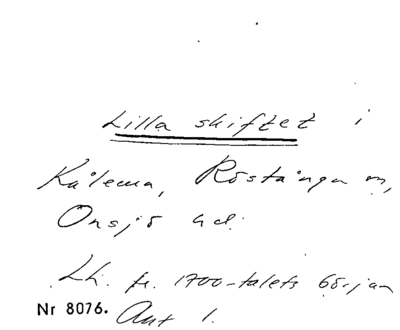 Lilla skiftet i
Kålema, Röstånga sn,
Onsjö hd.
Lh. fr. 1700-talets början
Nr 8076. Ant 1.